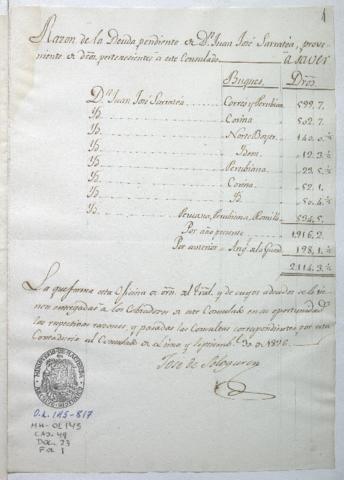 1
Razon de la Deuda pendiente de Dn Juan José Sarratea, prove-
niente de dros. pertenecientes a este Consulado
a saver
Buques, Dros.
Dn Juan José Sarratea Cortes y Perubiana 599.7.
Yd. Corina 502.7.
Yd. 140.0.½
Yd. Idem. 12.3.½
Yd. Perubiana 22.5.½
Yd. Corina 52.1.
Yd. Yd. 50.4.½
Yd. Peruano, Perubiana, 534.5.
Por año presente 1916.2.
Por anterior 198.1.½
2114.3.½
La que forma esta Oficina de orn. al Tral. y de cuyos adeudos se le tie-
nen entregadas a los Cobradores de este Consulado en su oportunidad
las respectivas razones, y pasadas las Consultas correspondientes por esta
Contaduria al Consulado de Lima y Septiembre 30 de 1826.
Jose de Sologuren
MINISTERIO DE HACIENDA
O.L. 145-817
MH-OL 145
CAJ. 49
DOC. 23
Fol 1